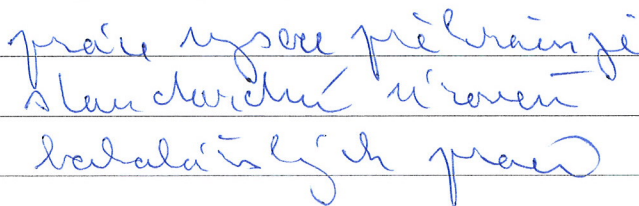 práce vysoce překračuje
standardní úroveň
bakalářských prací